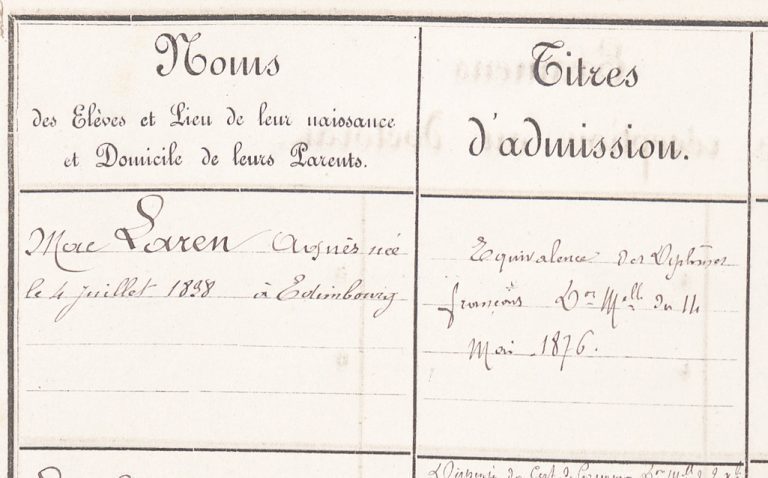 Noms
des Elèves et Lieu de leur naissance
et Domicile de leurs Parents.
Titres
d'admission.
Mac Laren Agnès née
le 4 juillet 1838 à Edimbourg
Equivalence des Diplômes
français Don Melle du 14
Mai 1876.